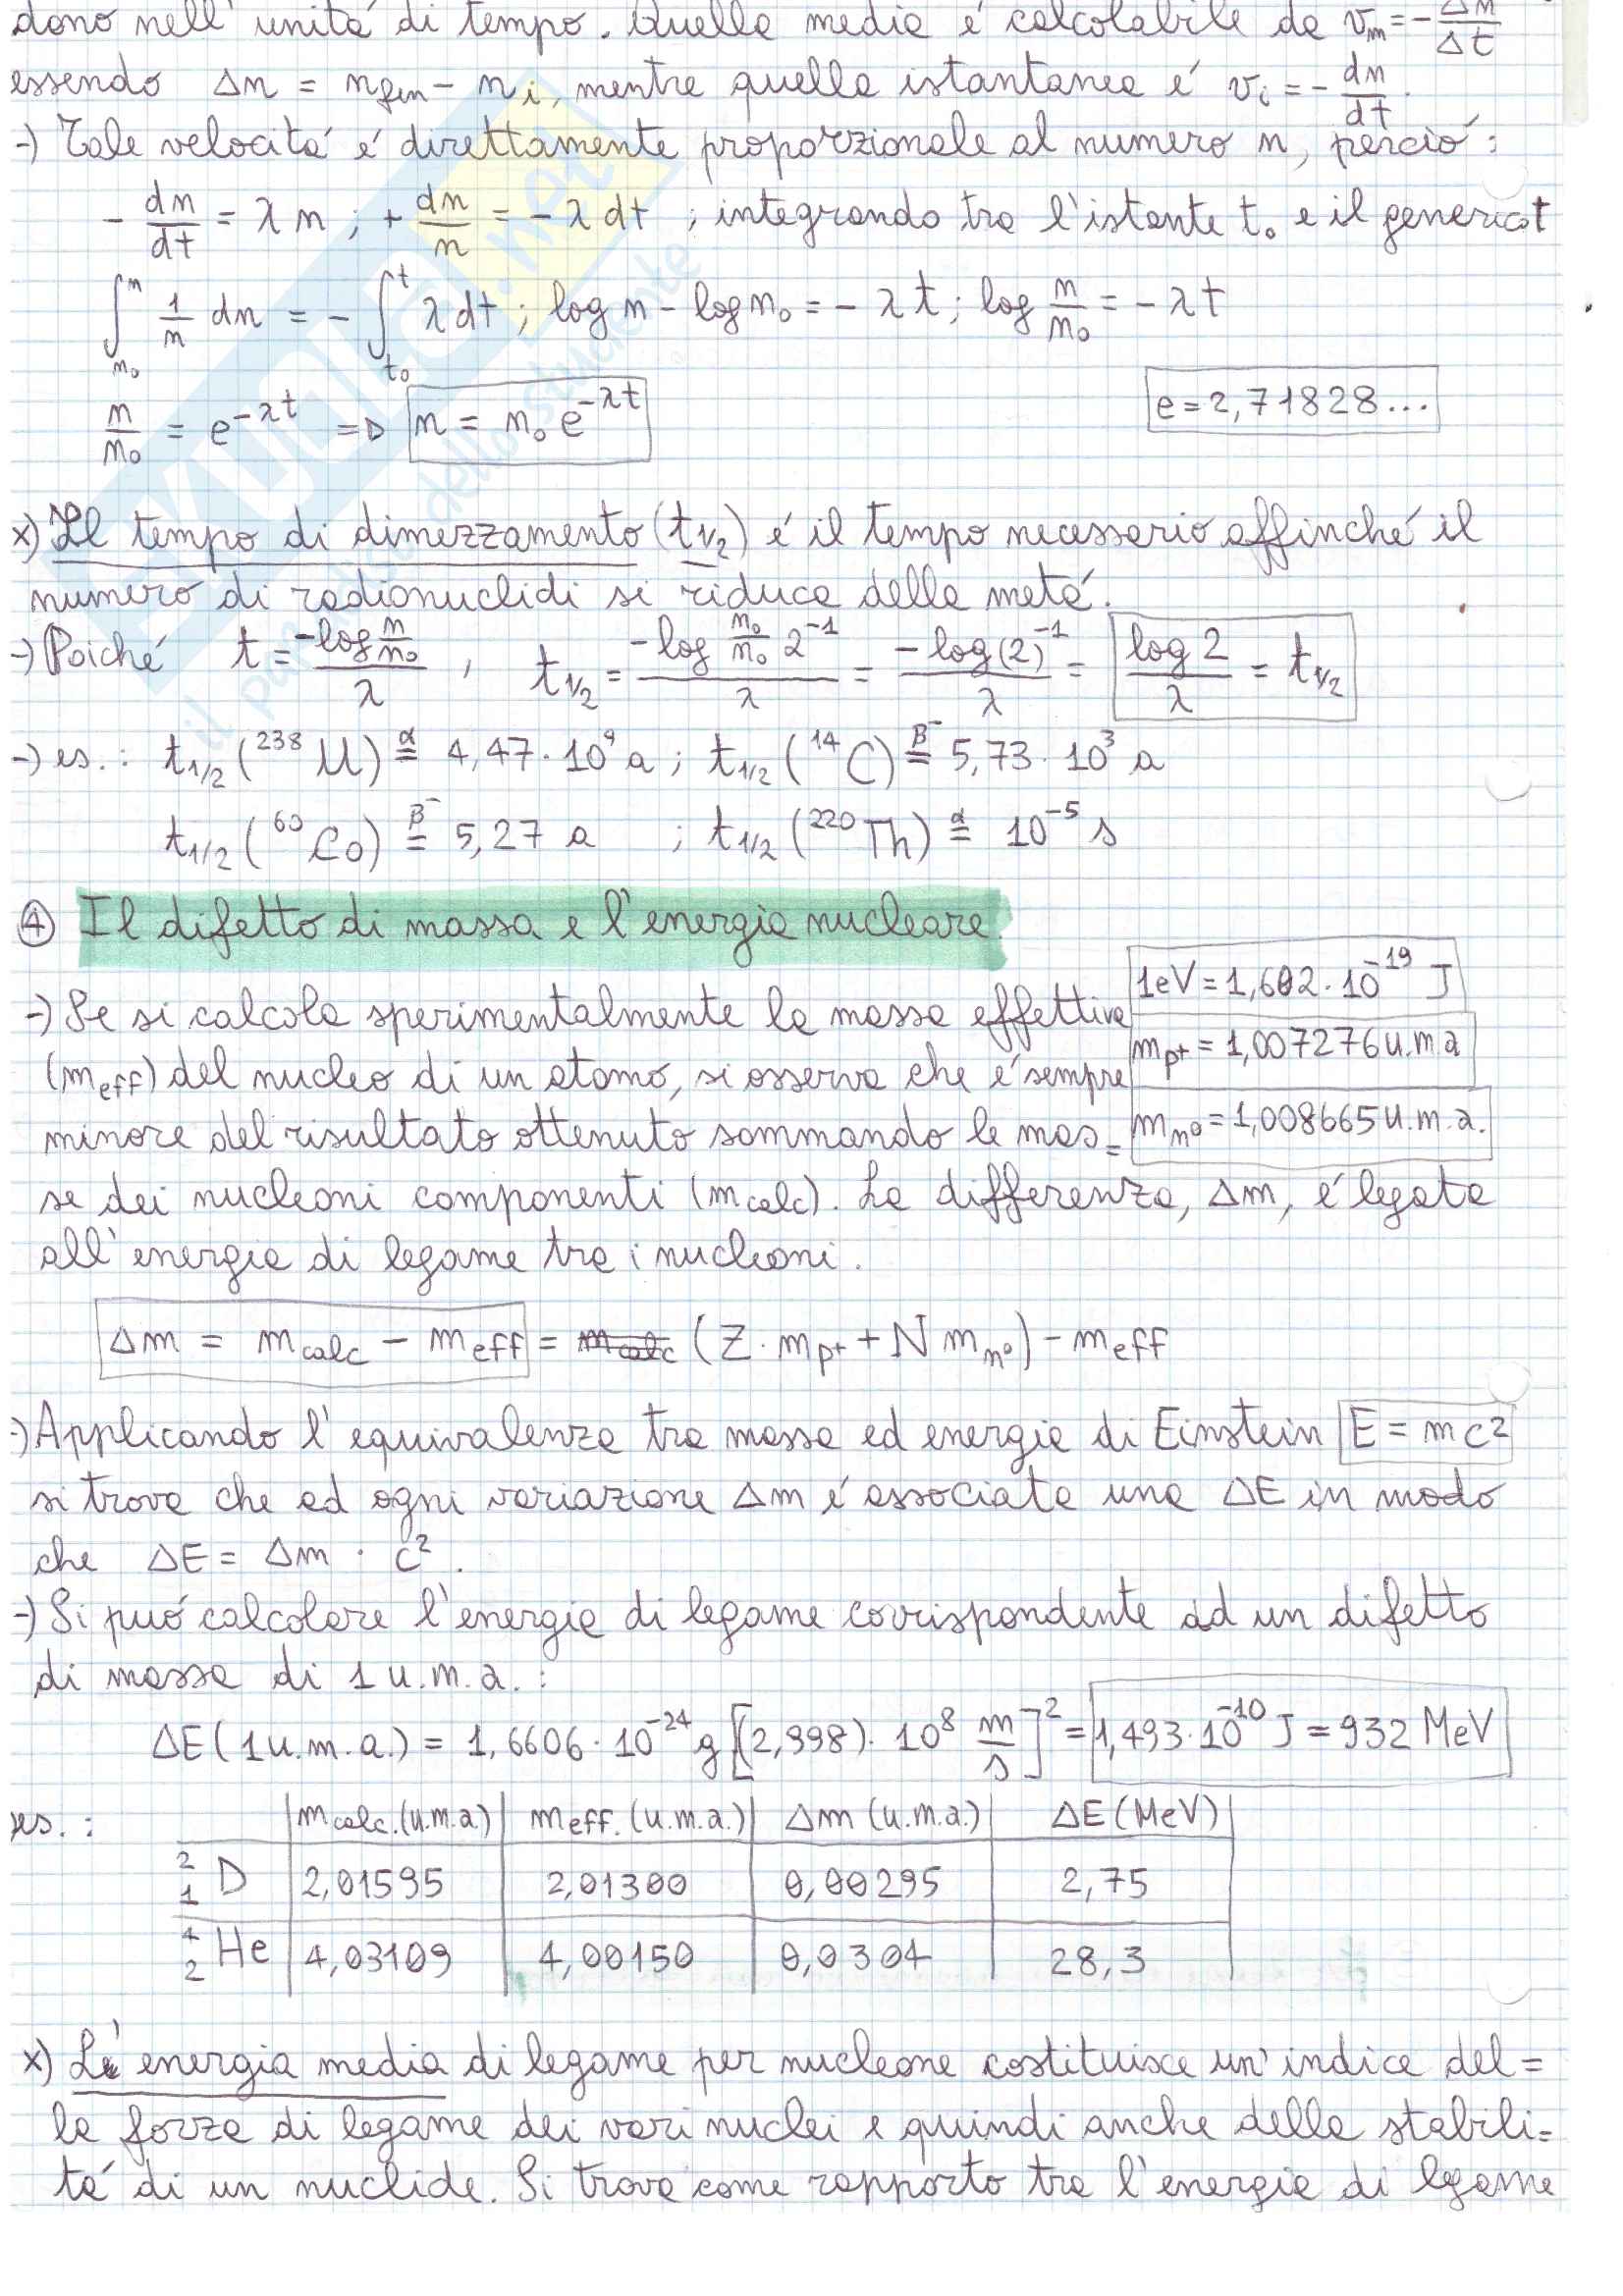 dono nell'unità di tempo. Quella media é calcolabile da vm = - Δn/Δt
essendo Δn = nfin - ni, mentre quella istantanea é vi = - dn/dt.
→) Tale velocità é direttamente proporzionale al numero n, perció:
- dn/dt = λn ; + dn/n = - λ dt ; integrando tra l'istante t₀ e il generico t
∫ₙ₀ⁿ 1/n dn = - ∫ₜ₀ᵗ λ dt ; log n - log n₀ = - λt ; log n/n₀ = - λt
n/n₀ = e^-λt => n = n₀ e^-λt e = 2,71828...
x) Il tempo di dimezzamento (t1/2) é il tempo necessario affinché il
numero di radionuclidi si riduca della metá.
→) Poiché t = -log n/n₀ / λ , t1/2 = -log n₀/n₀ 2⁻¹ / λ = -log(2)⁻¹ / λ = log 2 / λ = t1/2
→) es.: t1/2 (²³⁸U) α= 4,47·10⁹ a ; t1/2 (¹⁴C) β⁻= 5,73·10³ a
t1/2 (⁶⁰Co) β⁻= 5,27 a ; t1/2 (²²⁰Th) α= 10⁻⁵ s
④ Il difetto di massa e l'energia nucleare.
1eV = 1,602·10⁻¹⁹ J
→) Se si calcola sperimentalmente la massa effettiva
mp+ = 1,007276 u.m.a
(meff) del nucleo di un atomo, si osserva che é sempre
minore del risultato ottenuto sommando le mas= mn⁰ = 1,008665 u.m.a.
se dei nucleoni componenti (mcalc). La differenza, Δm, é legata
all'energia di legame tra i nucleoni.
Δm = mcalc - meff = mcalc (Z·mp+ + N mn⁰) - meff
→) Applicando l'equivalenza tra massa ed energia di Einstein E = mc²
si trova che ad ogni variazione Δm é associata una ΔE in modo
che ΔE = Δm · c².
→) Si puó calcolare l'energia di legame corrispondente ad un difetto
di massa di 1 u.m.a.:
ΔE(1u.m.a.) = 1,6606·10⁻²⁴ g [(2,998)·10⁸ m/s]² = 1,493·10⁻¹⁰ J = 932 MeV
es.: mcalc.(u.m.a) meff.(u.m.a.) Δm (u.m.a.) ΔE (MeV)
²₁D 2,01595 2,01300 0,00295 2,75
⁴₂He 4,03109 4,00150 0,0304 28,3
x) L'energia media di legame per nucleone costituisce un'indice del=
la forza di legame dei vari nuclei e quindi anche della stabili=
tá di un nuclide. Si trova come rapporto tra l'energia di legame